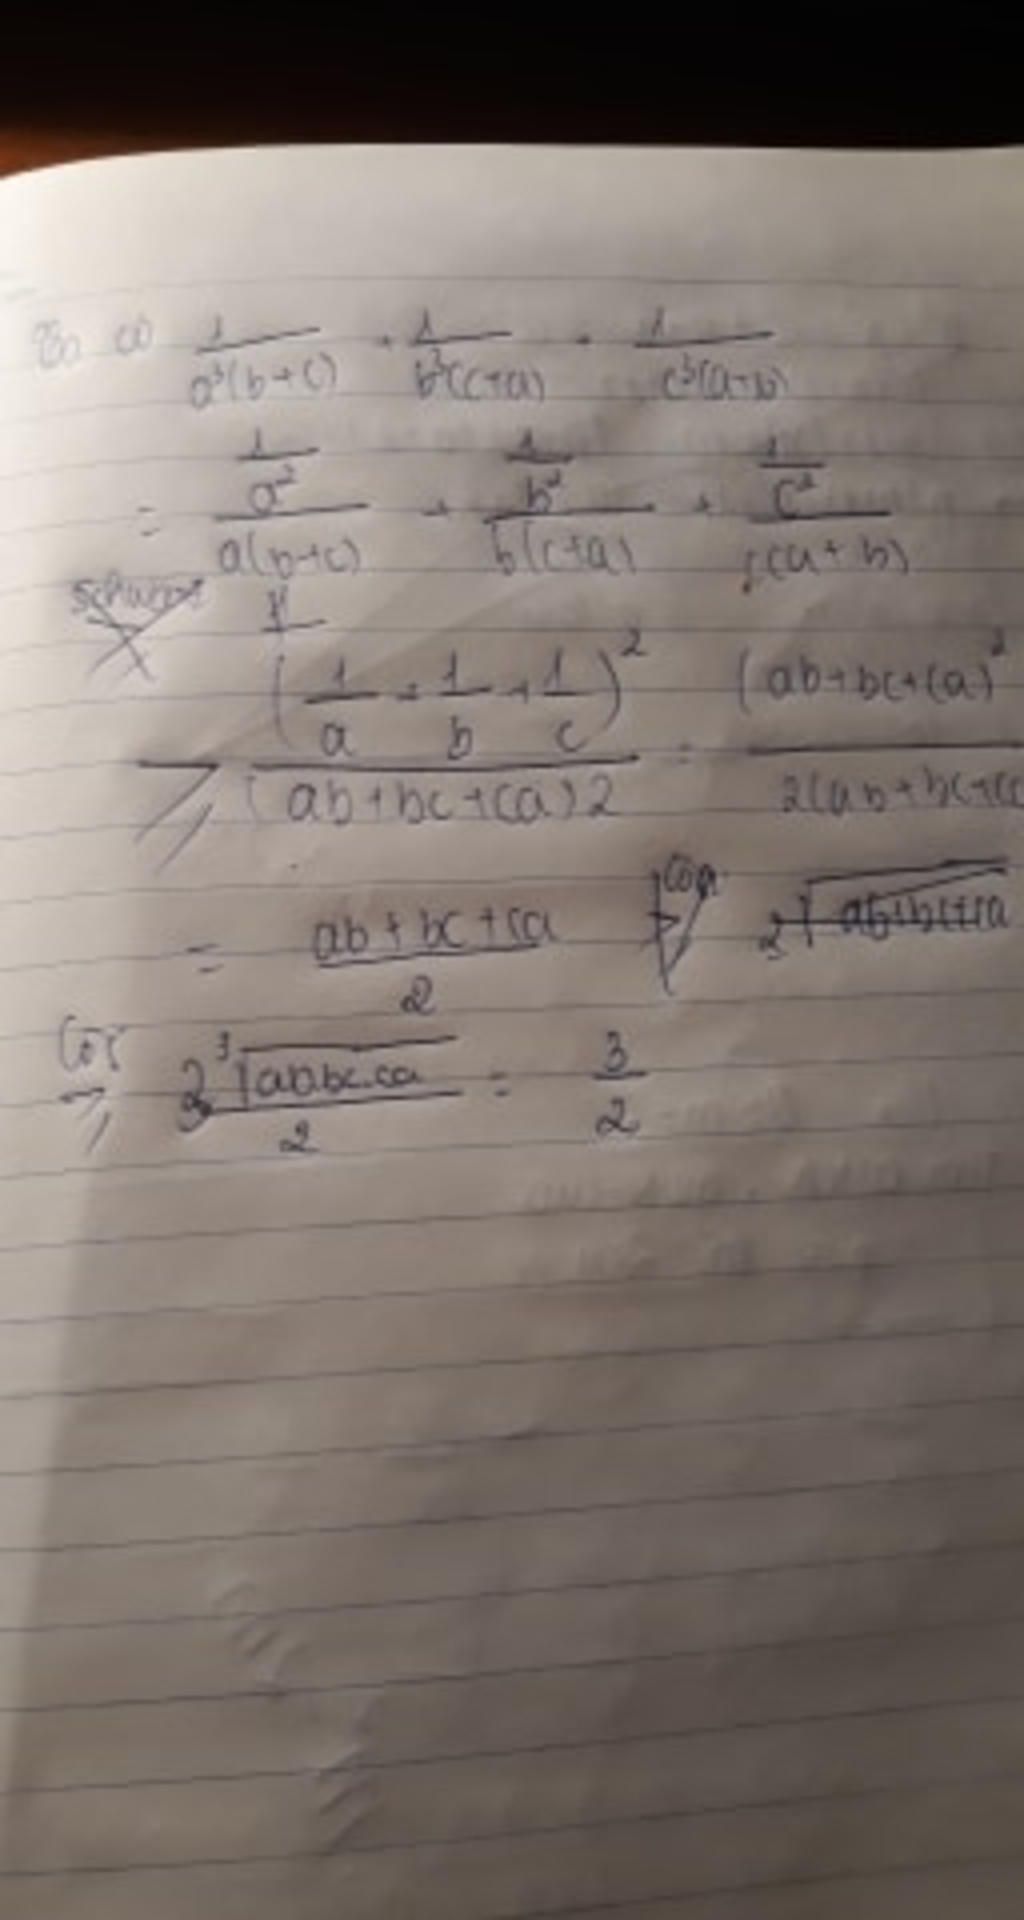 Ta có 1/a³(b+c) + 1/b³(c+a) + 1/c³(a+b)
= (1/a²)/a(b+c) + (1/b²)/b(c+a) + (1/c²)/c(a+b)
⩾ (1/a + 1/b + 1/c)²/(ab+bc+ca)2 = (ab+bc+ca)²/2(ab+bc+ca
= ab+bc+ca/2
Cosi ⩾ 3∛ab.bc.ca/2 = 3/2